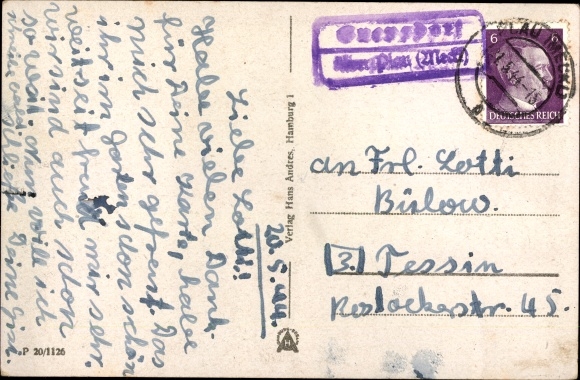 20.5.44.
Liebe Lotti!
Habe vielen Dank
für Deine Karte, habe
mich sehr gefreut. Das
ihr im Garten schon schön
weit seit freut mir sehr.
wir sind auch schon
so weit.
Deine
Verlag Hans Andres, Hamburg 1
P 20/1126
über Plau (Meckl)
PLAU (MECKL)
6 6
DEUTSCHES REICH
an Frl. Lotti
Bülow.
3. Tessin
Rostockerstr. 45.